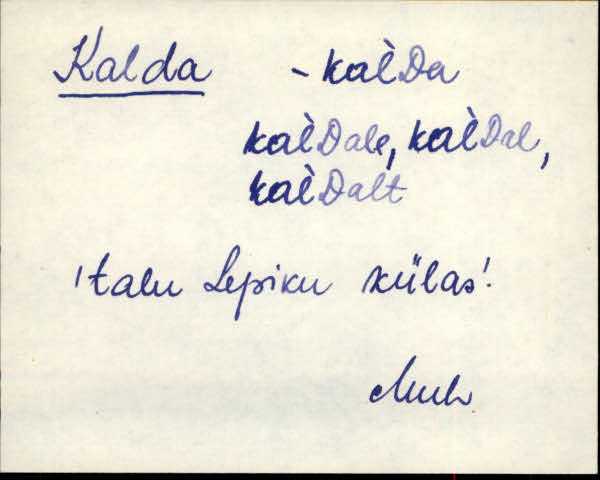 Kalda - kal̀Da
kal̀Dale, kal̀Dal,
kal̀Dalt
'talu Lepiku külas'.